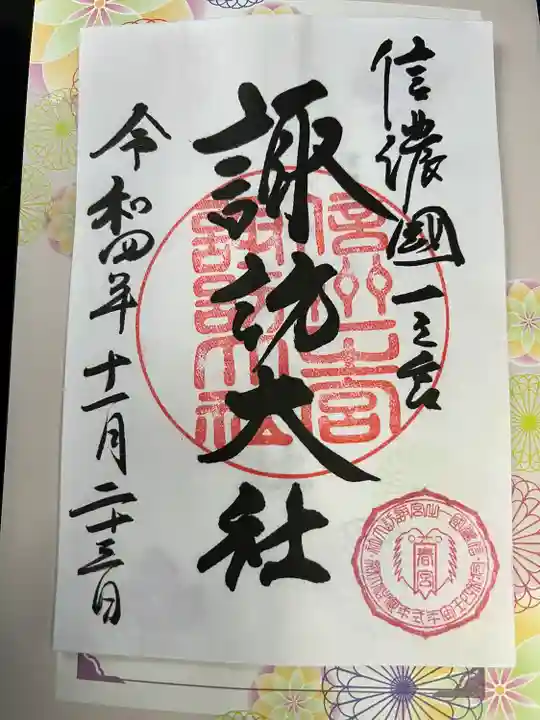 信濃國一之宮
諏訪大社
令和四年十一月二十三日
信州一之宮
諏訪大社
春宮